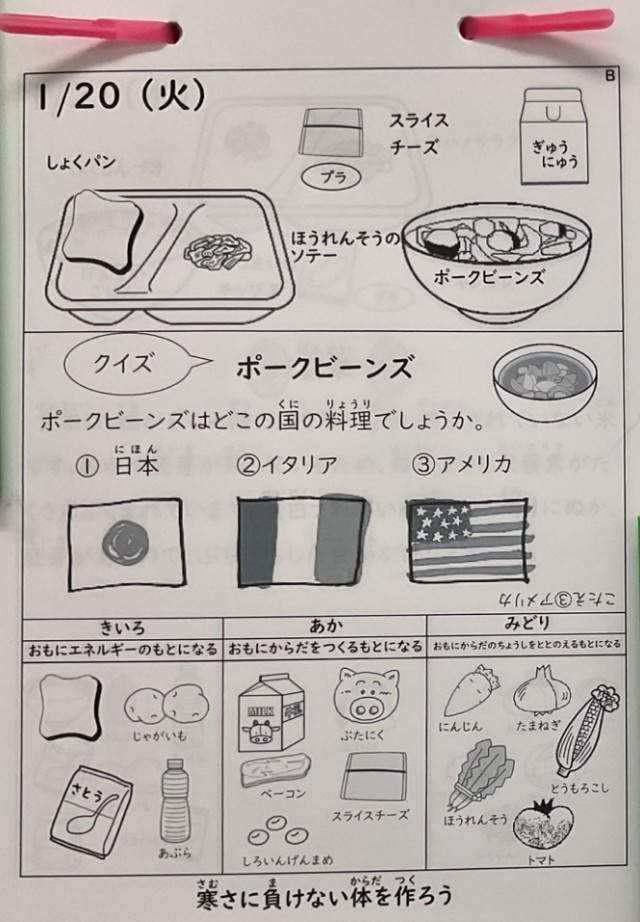 B
1/20（火）
しょくパン
スライス
チーズ
プラ
ぎゅう
にゅう
ほうれんそうの
ソテー
ポークビーンズ
クイズ
ポークビーンズ
ポークビーンズはどこの国の料理でしょうか。
くに
りょうり
① 日本
にほん
②イタリア
③アメリカ
こたえ③アメリカ
きいろ
あか
みどり
おもにエネルギーのもとになる
おもにからだをつくるもとになる
おもにからだのちょうしをととのえるもとになる
じゃがいも
さとう
あぶら
MILK
牛乳
ぶたにく
ベーコン
スライスチーズ
しろいんげんまめ
にんじん
たまねぎ
とうもろこし
ほうれんそう
トマト
寒さに負けない体を作ろう
さむ
ま
からだ
つく